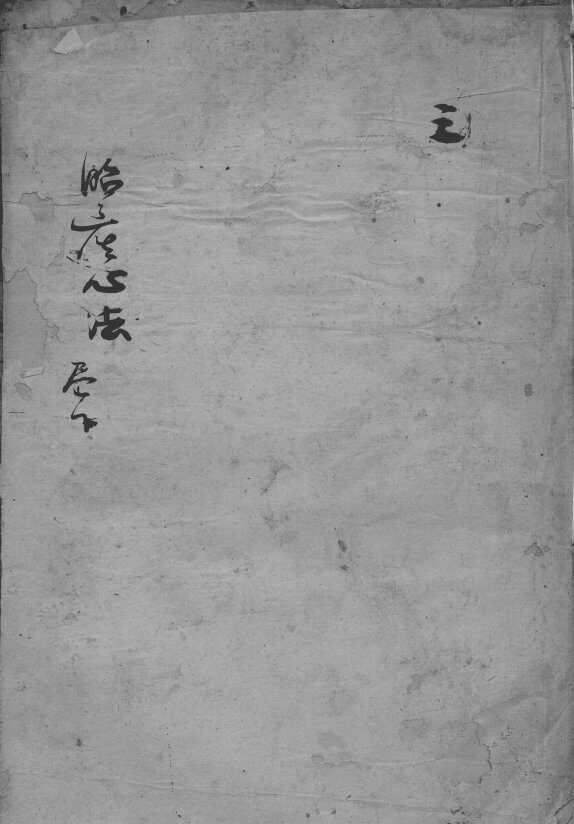 三
胎産心法 卷下